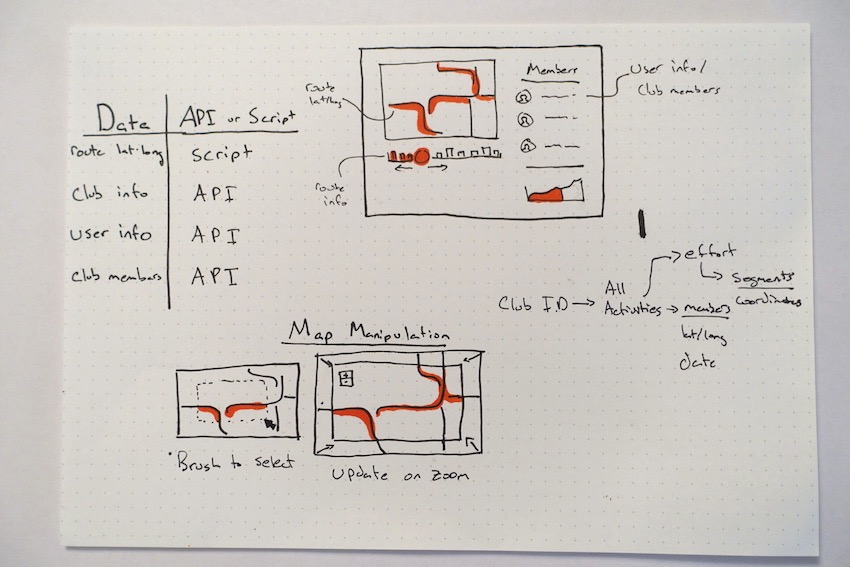 Data API or Script
route lat-long script
Club info API
User info API
Club members API
route
lat/long
route
info
Members
User info/
Club members
Club I.D → All
Activities
→ effort
Segments
Coordinates
→ members
lat/long
date
Map Manipulation
Brush to select
+
-
Update on Zoom